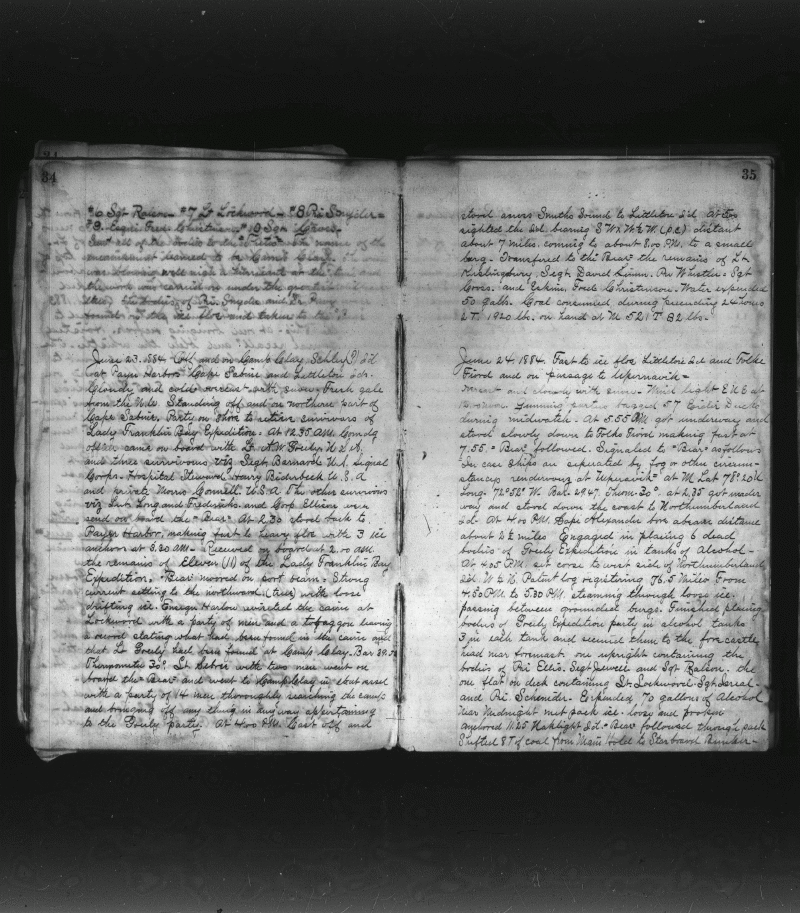 34
#6 Sgt Ralson - #7 Lt Lockwood - #8 Pri Snyder -
#9 Esqui Fred Christiansen #10 Sgt
Sent all of the bodies to the "Thetis" the name of the
learned to be Camp Clay.
was blowing well nigh a hurricane at the
the work was carried on under the
the bodies of Pri. Snyder and
the ice floe and taken to the
June 23. 1884. Off and on Camp Clay,
last Payer Harbor Cape Sabine and Littleton Id.
Cloudy and cold snow Fresh gale
from the Nd. Standing off and on northern part of
Cape Sabine. Party on shore to relieve survivors of
Lady Franklin Bay Expedition. At 12.35 AM. Comdg
officer came on board with Lt A.W. Greely. U.S.A,
and three survivors viz Segt Barnard U.S. signal
Corps - Hospital Steward Harry Biderbeck U.S.A
and private Morris Connell, U.S.A. The other survivors
viz Sgt Long and Fredericks and Corp Ellison were
send on board the "Bear" At 2.30 stood back to
Payer Harbor, making fast to heavy floe with 3 ice
anchors at 3.30 AM - Received on board at 2.00 AM.
the remains of Eleven (11) of the Lady Franklin Bay
Expedition. "Bear" moored on port beam - Strong
current setting to the northward (true) with loose
drifting ice. Ensign Harlow revisited the cairns at
Lockwood with a party of men and a toboggan leaving
a record stating what had been found in the cairn and
that Lt Greely had been found at Camp Clay. Bar 29.
Thermometer 30°. Lt Sebree with two men went on
board the "Bear" and went to Camp Clay in
with a party of 14 men thoroughly searching the camp
and bringing off any thing in any way appertaining
to the Greely party. At 4.00 P.M. Cast off and
35
stood across Smiths Sound to Littleton Id. At
sighted the Id. bearing S W x W ½ W. (p.c) distant
about 7 miles. coming to about 8.00 P.M. to a small
berg. Transfered to the "Bear" the remains of Lt
Kislingbury, Segt David Linn. Pri Whistler - Sgt
Cross. and Eskim. Fred Christiansen. Water expended
50 galls. Coal consumed during preceeding 24 hours
2 T. 1920 lbs. on hand at M 521 T 32 lbs -
June 24. 1884. Fast to ice floe Littleton Id and Folke
Fiord and on passage to Upernavik -
and cloudy with snow - Wind light E N E at
Gunning parties bagged 57 Eider Ducks
during midwatch - At 5.55 PM got underway and
stood slowly down to Folke Fiord making fast at
7.55. - "Bear" followed. Signaled to "Bear" as follows
In case ships are separated by fog or other circum-
stances rendezvous at Upernavik - at M Lat 78° 20' N
Long. 72° 52' W. Bar. 29.47. Thom. 30°. at 2.35 got under
way and stood down the coast to Northumberland
Id - At 4.00 P.M. Cape Alexander bore abeam distance
about 2½ miles Engaged in placing 6 dead
bodies of Greely Expedition in tanks of Alcohol -
At 4.05 PM. set corse to west side of Northumberland
Id. Patent log registering 76.5 Miles From
4.50 P.M. to 5.30 P.M. steaming through loose ice.
passing between grounded bergs. Finished placing
bodies of Greely Expedition party in alcohol tanks
3 in each tank and secured them to the forecastle
head near foremast. on upright containing the
bodies of Pri Ellis. Segt Jewell and Sgt Ralson. the
one flat on deck containing Lt Lockwood Sgt Israel -
and Pri. Schenider. Expended, 70 gallons of Alcohol
Near Midnight met pack ice - loose and
anchored 11.25 Hakluyt Id - Bear followed through pack
Shifted 8 T of coal from Main Hold to Starboard Bunker -